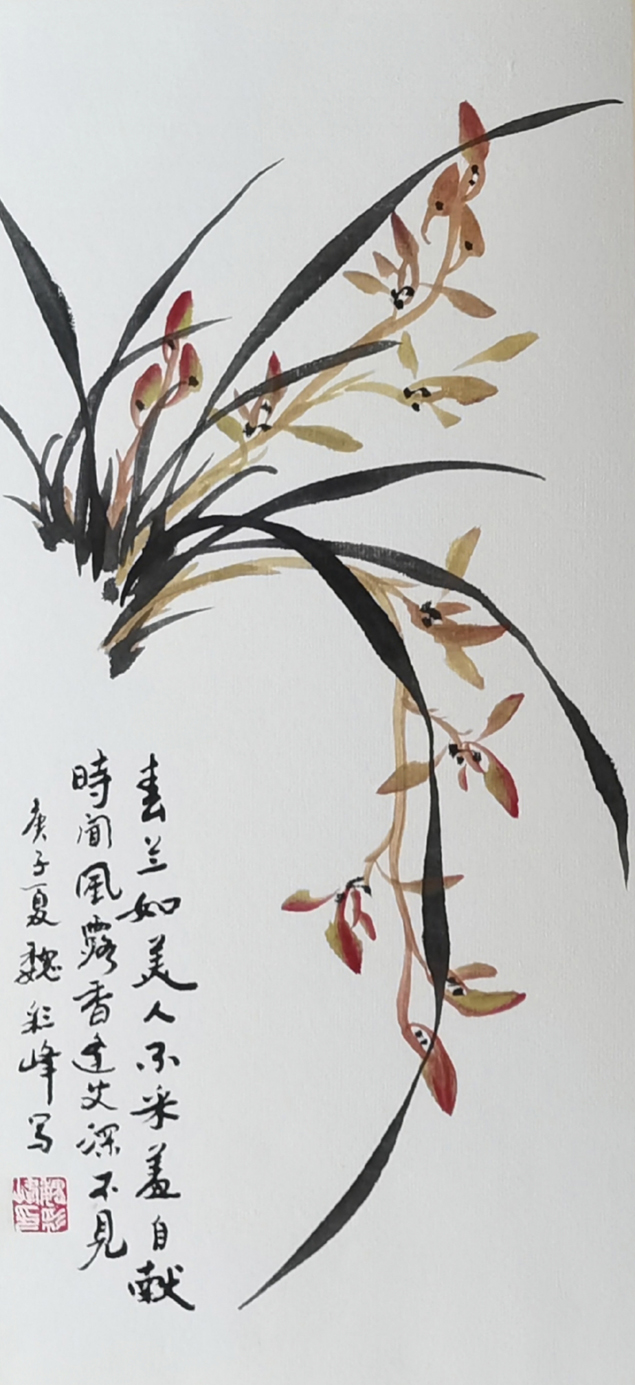 春兰如美人不采羞自献
時闻風露香蓬艾深不見
庚子夏魏彩峰写
魏彩峰印